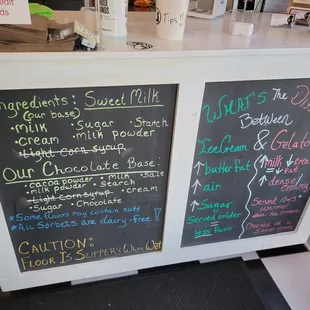 Tips!
Ingredients: Sweet Milk
(our base)
• milk • Sugar • Starch
• cream • milk powder
• Light Corn syrup
Our Chocolate Base:
• cocoa powder • milk • Salt
• milk powder • Starch • cream
• Light Corn syrup
• Sugar • Chocolate
*Some flavors may contain nuts
*All Sorbets are dairy-free!
CAUTION:
Floor Is Slippery When Wet
WHAT'S The
Between
IceCream & Gelato
↑ butter fat
↑ air
↑ Sugar
Served colder
less Pure
↑ milk ↓ cream
↓ fat
↑ dense